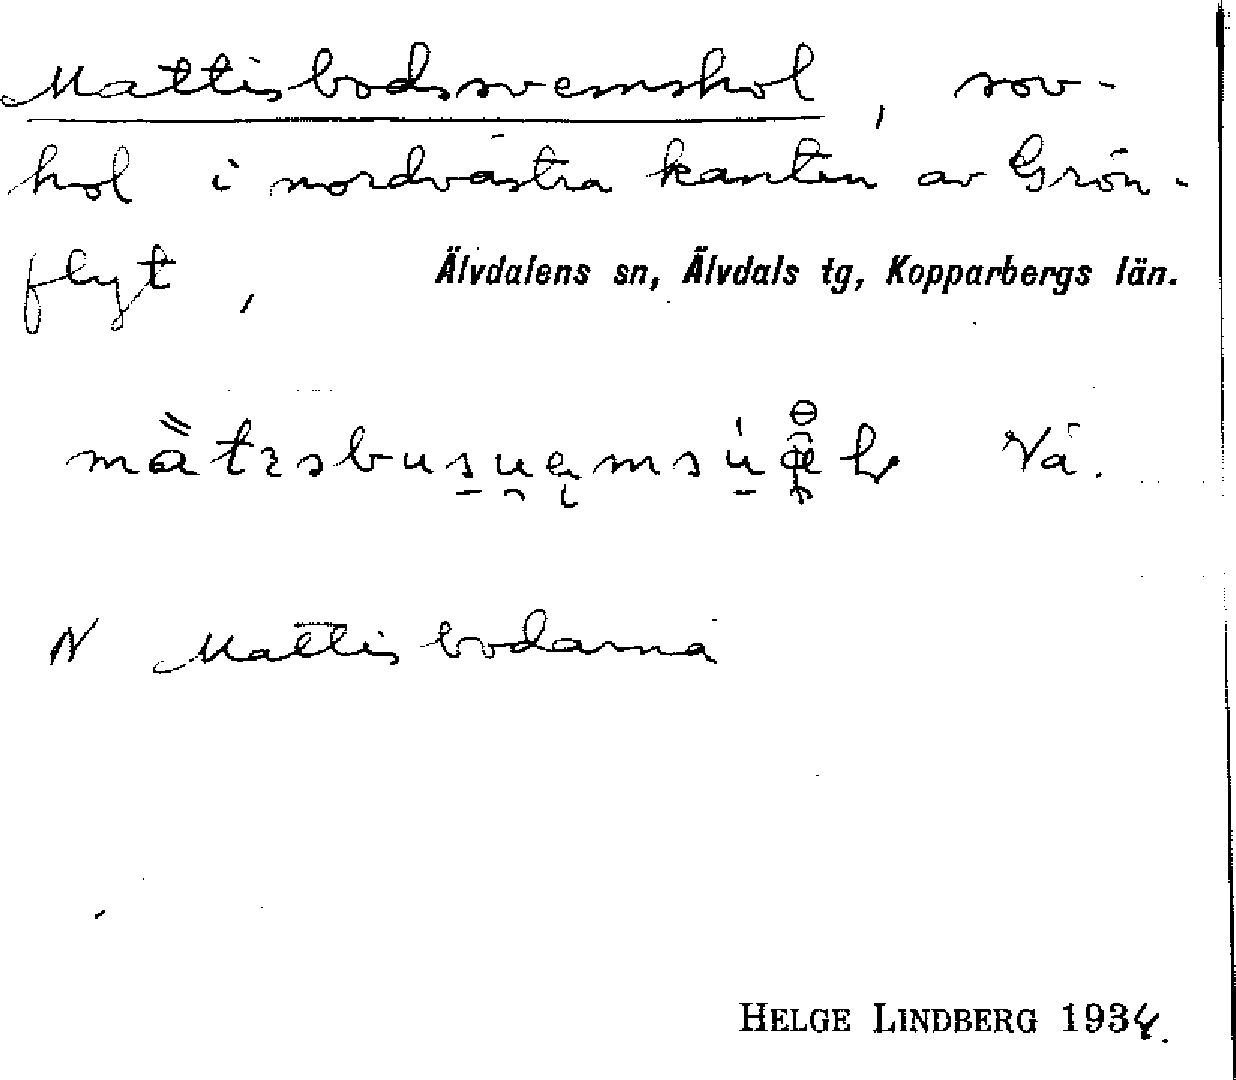 Mattisbodssvemskol, sov-
hol i nordvästra kanten av Grön-
flyt,
Älvdalens sn, Älvdals tg, Kopparbergs län.
Vå.
N Mattisbodarna
HELGE LINDBERG 1934.